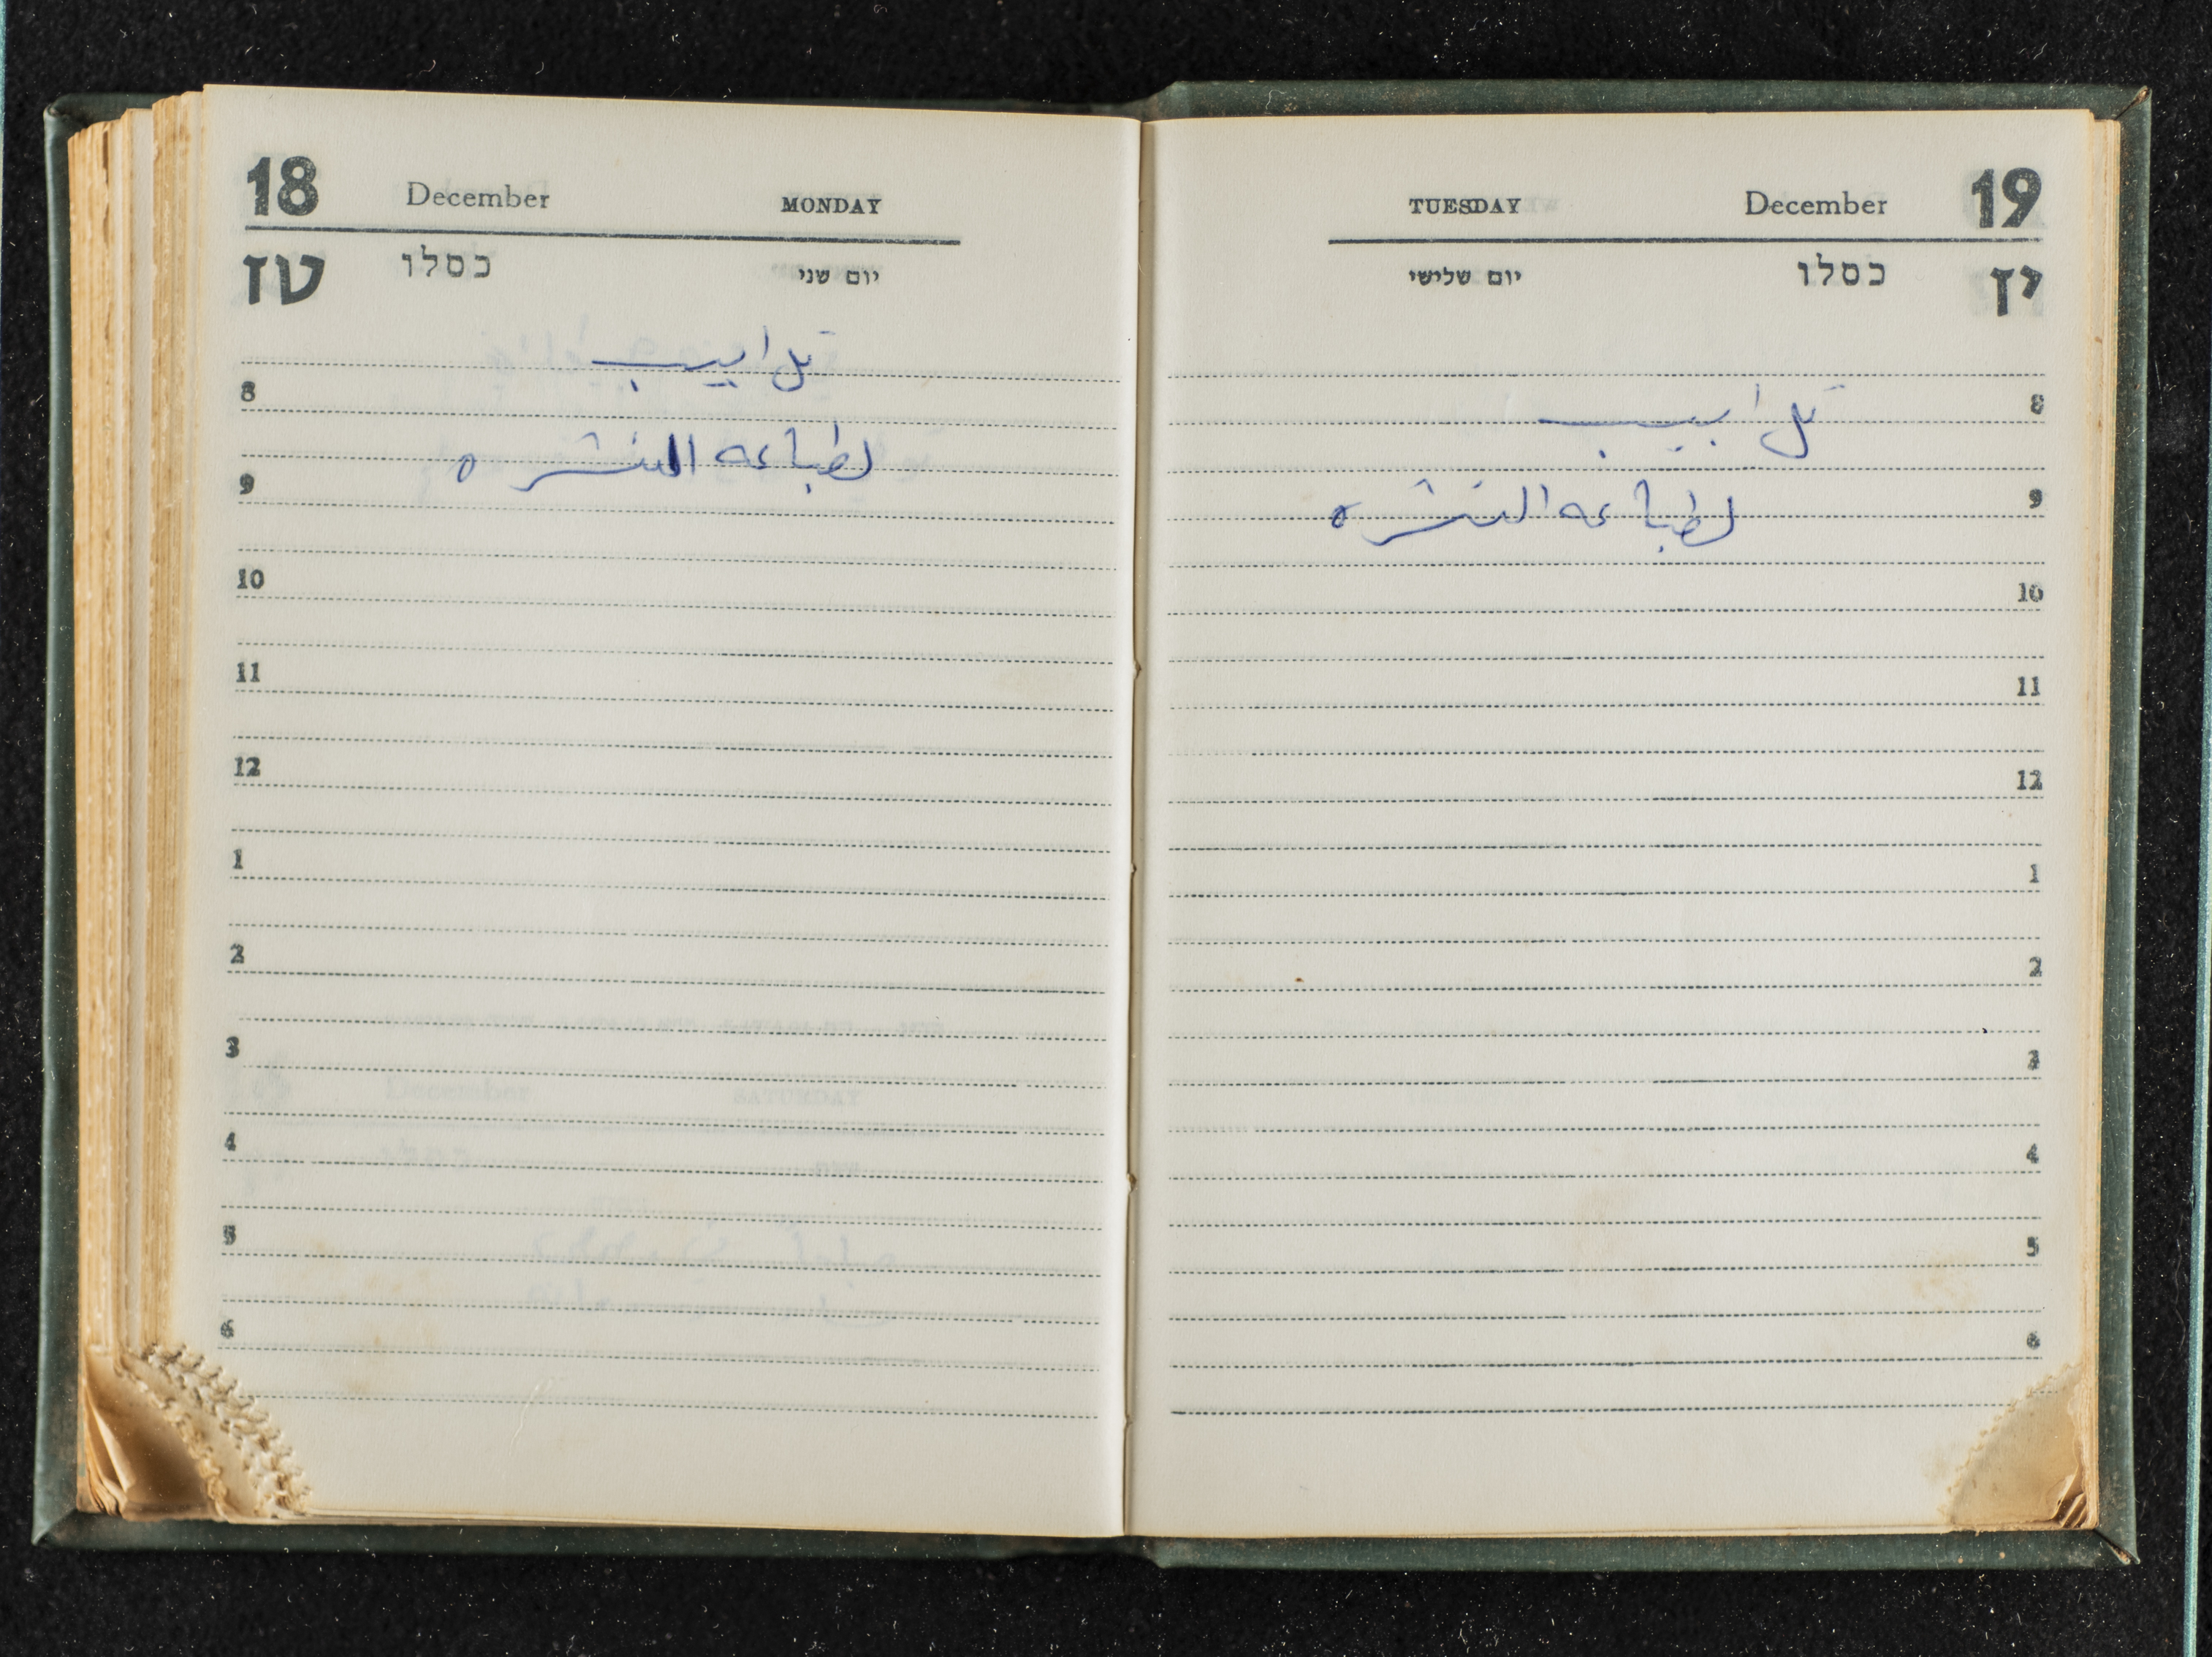 18 December MONDAY
טז כסלו יום שני
تل ابيب
8
لطباعه النشره
9
10
11
12
1
2
3
4
5
6
TUESDAY December 19
יום שלישי כסלו יז
8
تل ابيب
9
لطباعه النشره
10
11
12
1
2
3
4
5
6